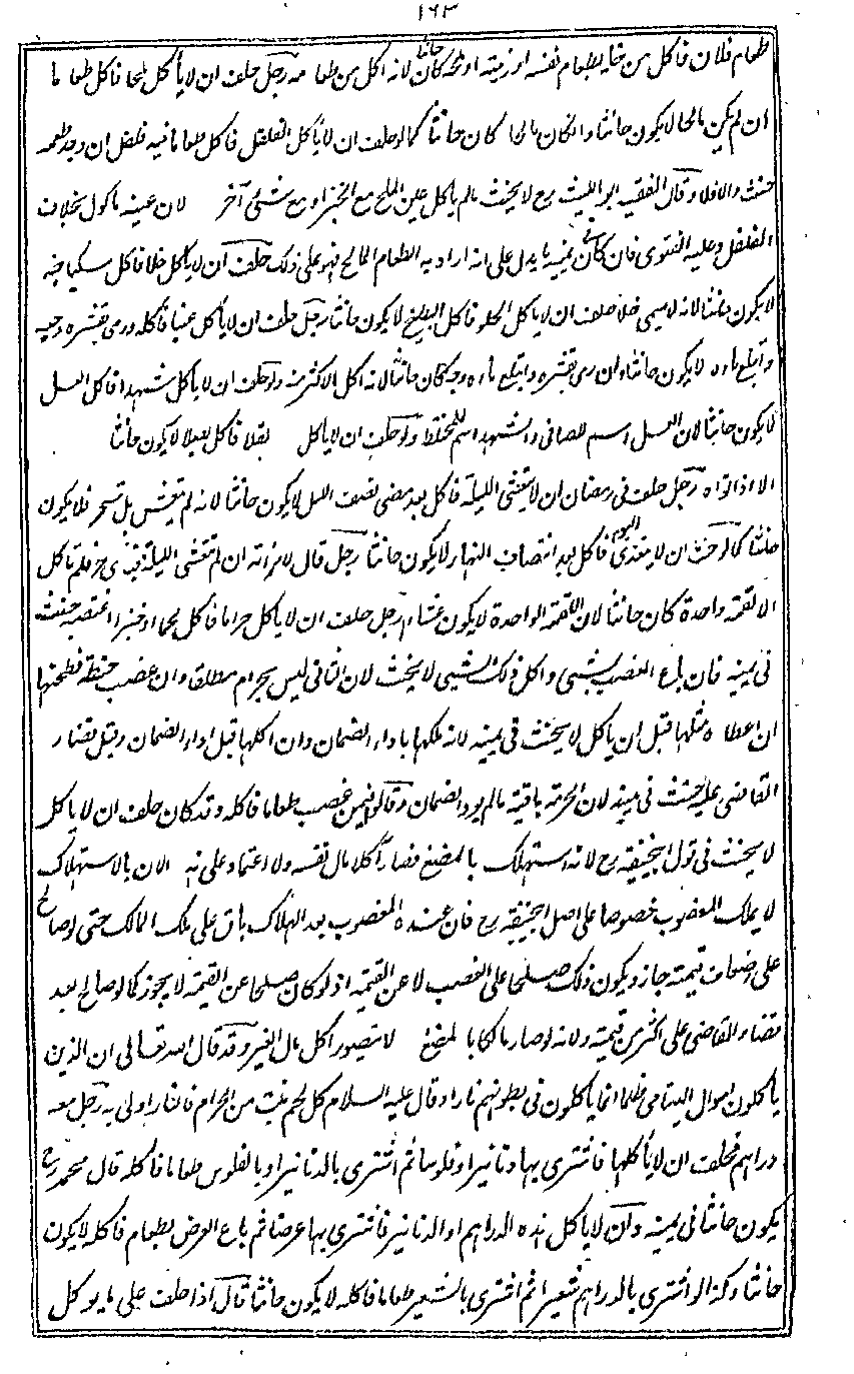 ١٦٣
طعام فلان فاكل من خل بطعام نفسه او زيته او ملحه كان حانثا لانه اكل من طعامه رجل حلف ان لا يأكل ملحا فاكل طعاما
ان لم يكن مالحا لا يكون حانثا وان كان مالحا كان حانثا كما لو حلف ان لا يأكل الفلفل فاكل طعاما فيه فلفل ان وجد طعمه
حنث والا فلا وقال الفقيه ابو الليث رح لا يحنث ما لم ياكل عين الملح مع الخبز او مع شئ آخر لان عينه ماكول بخلاف
الفلفل وعليه الفتوى فان كان في يمينه ما يدل على انه اراد به الطعام المالح فهو على ذلك حلف ان لا يأكل خلا فاكل سكباجة
لا يكون حانثا لانه لا يسمى خلا حلف ان لا ياكل الحلو فاكل البطيخ لا يكون حانثا رجل حلف ان لا يأكل عنبا فاكله ورمى بقشره وحبه
وابتلع ماءه لا يكون حانثا وان رمى بقشره وابتلع ماءه وحبه كان حانثا لانه اكل الاكثر منه ولو حلف ان لا يأكل شهدا فاكل العسل
لا يكون حانثا لان العسل اسم للصافى والشهد اسم للمختلط ولو حلف ان لا ياكل بقلا فاكل بصلا لا يكون حانثا
الا اذا نواه رجل حلف فى رمضان ان لا يتعشى الليلة فاكل بعد مضى نصف الليل لا يكون حانثا لانه لم يتعش بل تسحر فلا يكون
حانثا كما لو حنث ان لا يتغدى اليوم فاكل بعد انتصاف النهار لا يكون حانثا رجل قال لامرأته ان لم تتعشى الليلة فعبدى حر فلم تاكل
الا لقمة واحدة كان حانثا لان اللقمة الواحدة لا يكون عشاء رجل حلف ان لا ياكل حراما فأكل لحما او خبزا اغتصبه حنث
فى يمينه فان باع الغصب بشئ واكل ذلك الشئ لا يحنث لان الثانى ليس بحرام مطلقا وان غصب حنطة فطحنها
ان اعطاه مثلها قبل ان ياكل لا يحنث فى يمينه لانه ملكها باداء الضمان وان اكلها قبل اداء الضمان وقبل قضاء
القاضى عليه حنث فى يمينه لان الحرمة باقية ما لم يود الضمان وقالوا فيمن غصب طعاما فاكله وقد كان حلف ان لا ياكل
لا يحنث فى قول ابيحنيفة رح لانه استهلك بالمضغ فصار آكلا مال نفسه ولا اعتماد على الان بالاستهلاك
لا يملك المغصوب خصوصا على اصل ابيحنيفة رح فان عنده المغصوب بعد الهلاك باق على ملك المالك حتى لو صالح
على اضعاف قيمته جاز ويكون ذلك صلحا على الغصب لا عن القيمة اذ لو كان صلحا عن القيمة لا يجوز كما لو صالح بعد
قضاء القاضى على اكثر من قيمته ولانه لو صار مالكا بالمضغ لا يتصور اكل مال الغير وقد قال الله تعالى ان الذين
يأكلون اموال اليتامى ظلما انما يأكلون فى بطونهم نارا وقال عليه السلام كل لحم نبت من الحرام فالنار اولى به رجل معه
دراهم فحلف ان لا يأكلها فاشترى بها دنانير او فلوسا ثم اشترى بالدنانير او بالفلوس طعاما فاكله قال محمد رح
يكون حانثا فى يمينه وان لا ياكل هذه الدراهم او الدنانير فاشترى بها عرضا ثم باع العرض بطعام فاكله لا يكون
حانثا وكذا لو اشترى بالدراهم شعيرا ثم اشترى بالشعير طعاما فاكله لا يكون حانثا قال اذا حلف على ما يوكل